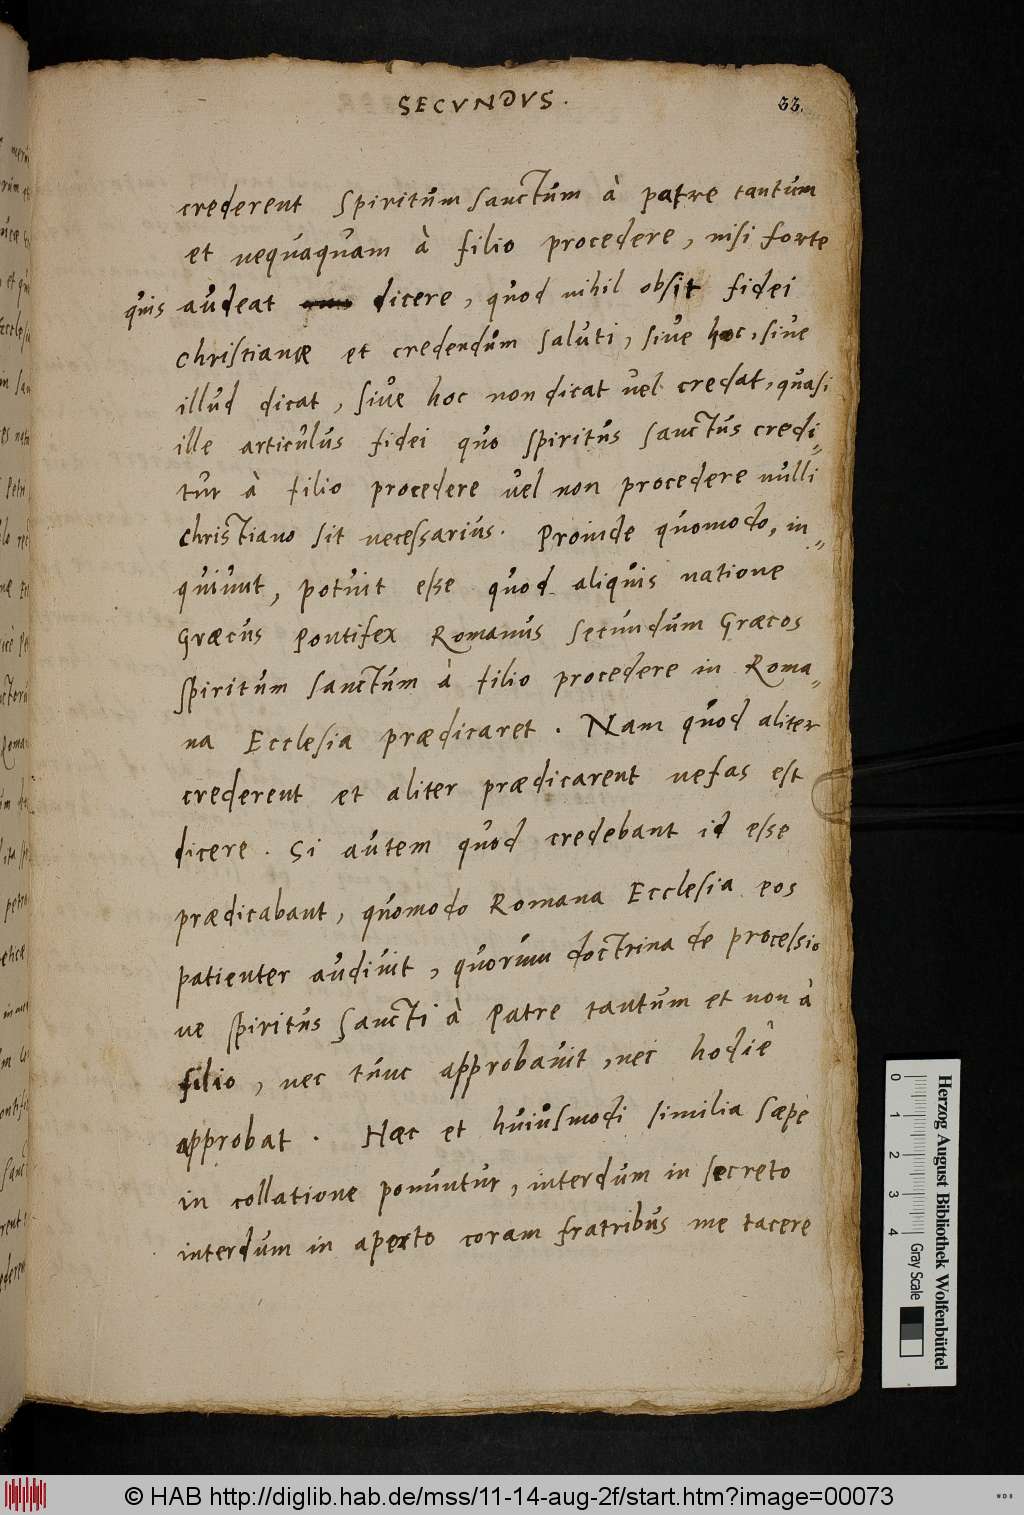 SECVNDVS.
33.
crederent spiritum sanctum à patre tantum
et nequaquam à filio procedere, nisi forte
quis audeat dicere, quod nihil obsit fidei
christianæ et credendum saluti, siue hoc, siue
illud dicat, siue hoc non dicat uel credat, quasi
ille articulus fidei quo spiritus sanctus credi„
tur à filio procedere uel non procedere nulli
christiano sit necessarius. Proinde quomodo, in„
quiunt, potuit esse quod aliquis natione
Græcus Pontifex Romanus secundum Græcos
spiritum sanctum à filio procedere in Roma„
na Ecclesia prædicaret. Nam quod aliter
crederent et aliter prædicarent nefas est
dicere. Si autem quod credebant id esse
prædicabant, quomodo Romana Ecclesia eos
patienter audiuit, quorum doctrina de processio
ne spiritus sancti à Patre tantum et non à
filio, nec tunc approbauit, nec hodiê
approbat. Hæc et huiusmodi similia sæpè
in collatione ponuntur, interdum in secreto
interdum in aperto coram fratribus me tacere
Herzog August Bibliothek Wolfenbüttel
0 1 2 3 4 Gray Scale
© HAB http://diglib.hab.de/mss/11-14-aug-2f/start.htm?image=00073